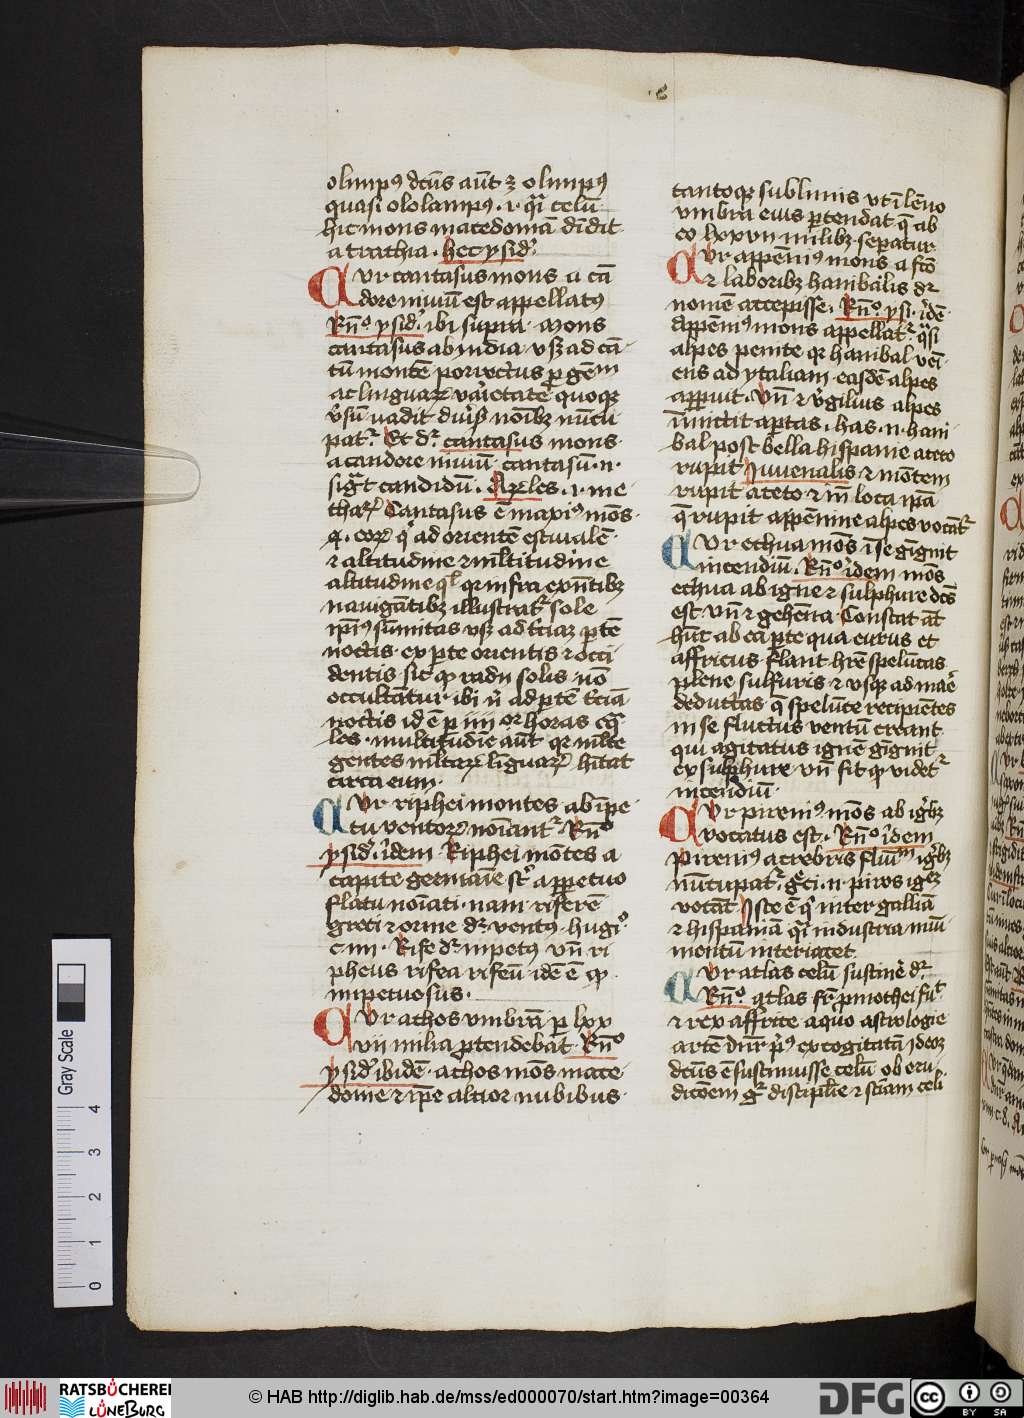 olimpꝰ dc̄us aūt ꝫ olimpꝰ
quasi ololampꝰ · i · q̄i celū
hic mons macedoniam diuidit
a trachia · hec ysidꝰ
Ur caucasus mons a cā
dore niuiū est appellatꝰ
Rn̄º ysidꝰ ibi supra · Mons
caucasus ab india vsqꝫ ad
montē porrectus
ac linguaꝝ varietate quoqꝫ
v̄sū uadit
Et dr̄ caucasus mons
a candore niuiū caucasū · n ·
candidū · i · me
Caucasus ē maxiꝰ mōs
ad orientē estiualē
ꝛ altitudine ꝛ ml̄titudine
altitudine qꝛ infra
nauigātibꝫ illustratꝛ sole
ip̄iꝰ sūmitas vsqꝫ ad t̄ciaꝫ ꝑtē
noctis · ex ꝑte orientis ꝛ occi
dentis sic ꝙ radii solis nō
occultātur · ibi ad ꝑtē t̄ciā
noctis id ē ꝑ iiii or horas
les · multitudīe aūt qꝛ ml̄te
gentes ml̄taꝝ linguaꝝ hītāt
circa eum
Ur riphei montes ab īpe
tu ventoꝝ noīantꝛ Rn̄º
ysidꝰ īdem Riphei mōtes a
capite germaīe st̄ a ꝑpetuo
flatu noīati · nam rifere
greci ꝛ orine dr̄ ventꝰ · hugiº
c iii · Rife dr̄ inpetꝰ vn̄ ri
pheus rifea rifeū · idē ē ꝙ
inpetuosus ·
Ur athos vmbrā ꝑ lxx
vii milia ꝑtendebat Rn̄º
ysidꝰ ibidē · athos mōs mace
donie ꝛ ip̄e altior nubibus
tantoqꝫ sublimis vt ī leno
vmbra eius ꝑtendat q̄ ab
eo lxxvii milibꝫ sepatur
Ur appēniꝰ mons a
ꝛ laboribꝫ hanibalis dr̄
nomē accepisse · Rn̄º ysi · īdē
Appēniꝰ mons appellatꝛ q̄si
alpes penine qꝛ hanibal veī
ens ad ytaliam easdē alpes
apꝑuit · vn̄ ꝛ v̓gilius alpes
īmittit apꝑtas · has · n · hani
bal post bella hispanie aceto
rupit Iuuenalis ꝛ mōtem
rupit aceto ꝛ in̄ loca ipā
q̄ rupit appēnine alpes vocātꝛ
Ur ethna mōs ī se gignit
incendiū · Rn̄º īdem mōs
ethna ab igne ꝛ sulphure dc̄s
est · vn̄ ꝛ gehēna Constat āt
hūc ab ea ꝑte qua eurus et
affricus flant hr̄e spelūcas
plene sulfuris ꝛ vsqꝫ ad marē
deductas q̄ spelūce recipiētes
in se fluctus ventū creant
qui agitatus ignē gignit
ex sulphure vn̄ fit ꝙ videtꝛ
incendiū
Ur pireniꝰ mōs ab ig̓bꝫ
vocatus est · Rn̄º īdem
pireniꝰ a crebris ig̓bꝫ
nūcupatꝛ greci · n · piros
vocāt Iste ē q̓ inter galliā
ꝛ hispaniā q̄i industria
mentū interiacet
Ur atlas celū sustinē dr̄
Rn̄º atlas fr̄ pmothei
ꝛ rex affrice a quo astrologie
artē dnr̄ pꝰ excogitatā ideoꝫ
dc̄us ē sustinuisse celū ob eru
dicōem gꝰ discipl̄ie ꝛ sciam celi
Gray Scale
4
3
2
1
0
RATSBÜCHEREI
LÜNEBURG
© HAB http://diglib.hab.de/mss/ed000070/start.htm?image=00364
DFG
cc
BY SA